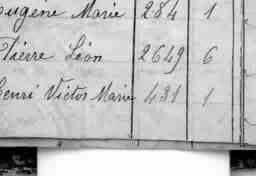 Eugène Marie 284 1
Pierre Léon 2649 6
Henri Victor Marie 431 1